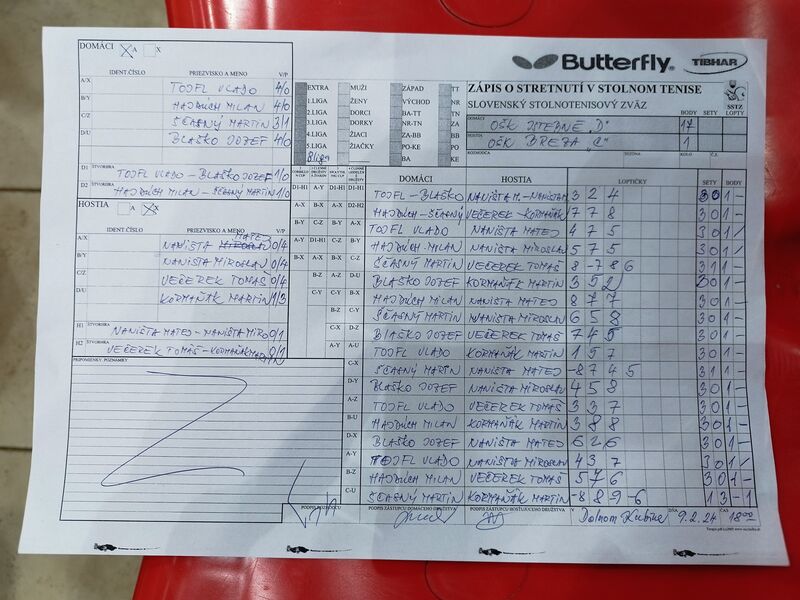 DOMÁCI A X
IDENT.ČÍSLO PRIEZVISKO A MENO V/P
A/X TOJFL VLADO 4/0
B/Y HAJDÚCH MILAN 4/0
C/Z ŠČASNÝ MARTIN 3/1
D/U BLAŠKO JOZEF 4/0
D1 ŠTVORHRA TOJFL VLADO - BLAŠKO JOZEF 1/0
D2 HAJDÚCH MILAN - ŠČASNÝ MARTIN 1/0
HOSTIA A X
IDENT.ČÍSLO PRIEZVISKO A MENO V/P
A/X NANIŠTA MATEJ 0/4
B/Y NANIŠTA MIROSLAV 0/4
C/Z VEČEREK TOMÁŠ 0/4
D/U KORMAŇÁK MARTIN 1/3
H1 ŠTVORHRA NANIŠTA MATEJ - NANIŠTA MIRO 0/1
H2 VEČEREK TOMÁŠ - KORMAŇÁK MARTIN 0/1
PRIPOMIENKY, POZNÁMKY
Butterfly TIBHAR
ZÁPIS O STRETNUTÍ V STOLNOM TENISE
SLOVENSKÝ STOLNOTENISOVÝ ZVÄZ
SSTZ
EXTRA MUŽI ZÁPAD TT
1.LIGA ŽENY VÝCHOD NR
2.LIGA DORCI BA-TT TN
3.LIGA DORKY NR-TN ZA
4.LIGA ŽIACI ZA-BB BB
5.LIGA ŽIAČKY PO-KE PO
8.liga BA KE
DOMÁCI OŠK ISTEBNÉ "D" 17
HOSTIA OŠK BREZA "C" 1
BODY SETY LOPTY
ROZHODCA KOLO
DOMÁCI HOSTIA LOPTIČKY SETY BODY
TOJFL - BLAŠKO NANIŠTA M. - NANIŠTA M. 3 2 4 3 0 1 -
HAJDÚCH - ŠČASNÝ VEČEREK - KORMAŇÁK 7 7 8 3 0 1 -
TOJFL VLADO NANIŠTA MATEJ 4 7 5 3 0 1 /
HAJDÚCH MILAN NANIŠTA MIROSLAV 5 7 5 3 0 1 -
ŠČASNÝ MARTIN VEČEREK TOMÁŠ 8 -7 8 6 3 1 1 -
BLAŠKO JOZEF KORMAŇÁK MARTIN 3 5 2 3 0 1 -
HAJDÚCH MILAN NANIŠTA MATEJ 8 7 7 3 0 1 -
ŠČASNÝ MARTIN NANIŠTA MIROSLAV 6 5 8 3 0 1 -
BLAŠKO JOZEF VEČEREK TOMÁŠ 7 4 5 3 0 1 -
TOJFL VLADO KORMAŇÁK MARTIN 1 5 7 3 0 1 -
ŠČASNÝ MARTIN NANIŠTA MATEJ -8 7 4 5 3 1 1 -
BLAŠKO JOZEF NANIŠTA MIROSLAV 4 5 8 3 0 1 -
TOJFL VLADO VEČEREK TOMÁŠ 3 3 7 3 0 1 -
HAJDÚCH MILAN KORMAŇÁK MARTIN 3 8 8 3 0 1 -
BLAŠKO JOZEF NANIŠTA MATEJ 6 2 6 3 0 1 -
TOJFL VLADO NANIŠTA MIROSLAV 4 3 7 3 0 1 /
HAJDÚCH MILAN VEČEREK TOMÁŠ 5 7 6 3 0 1 -
ŠČASNÝ MARTIN KORMAŇÁK MARTIN -8 8 -9 -6 1 3 - 1
PODPIS ROZHODCU PODPIS ZÁSTUPCU DOMÁCEHO DRUŽSTVA PODPIS ZÁSTUPCU HOSŤUJÚCEHO DRUŽSTVA V Dolnom Kubíne DŇA 9.2.24 ČAS 18:00